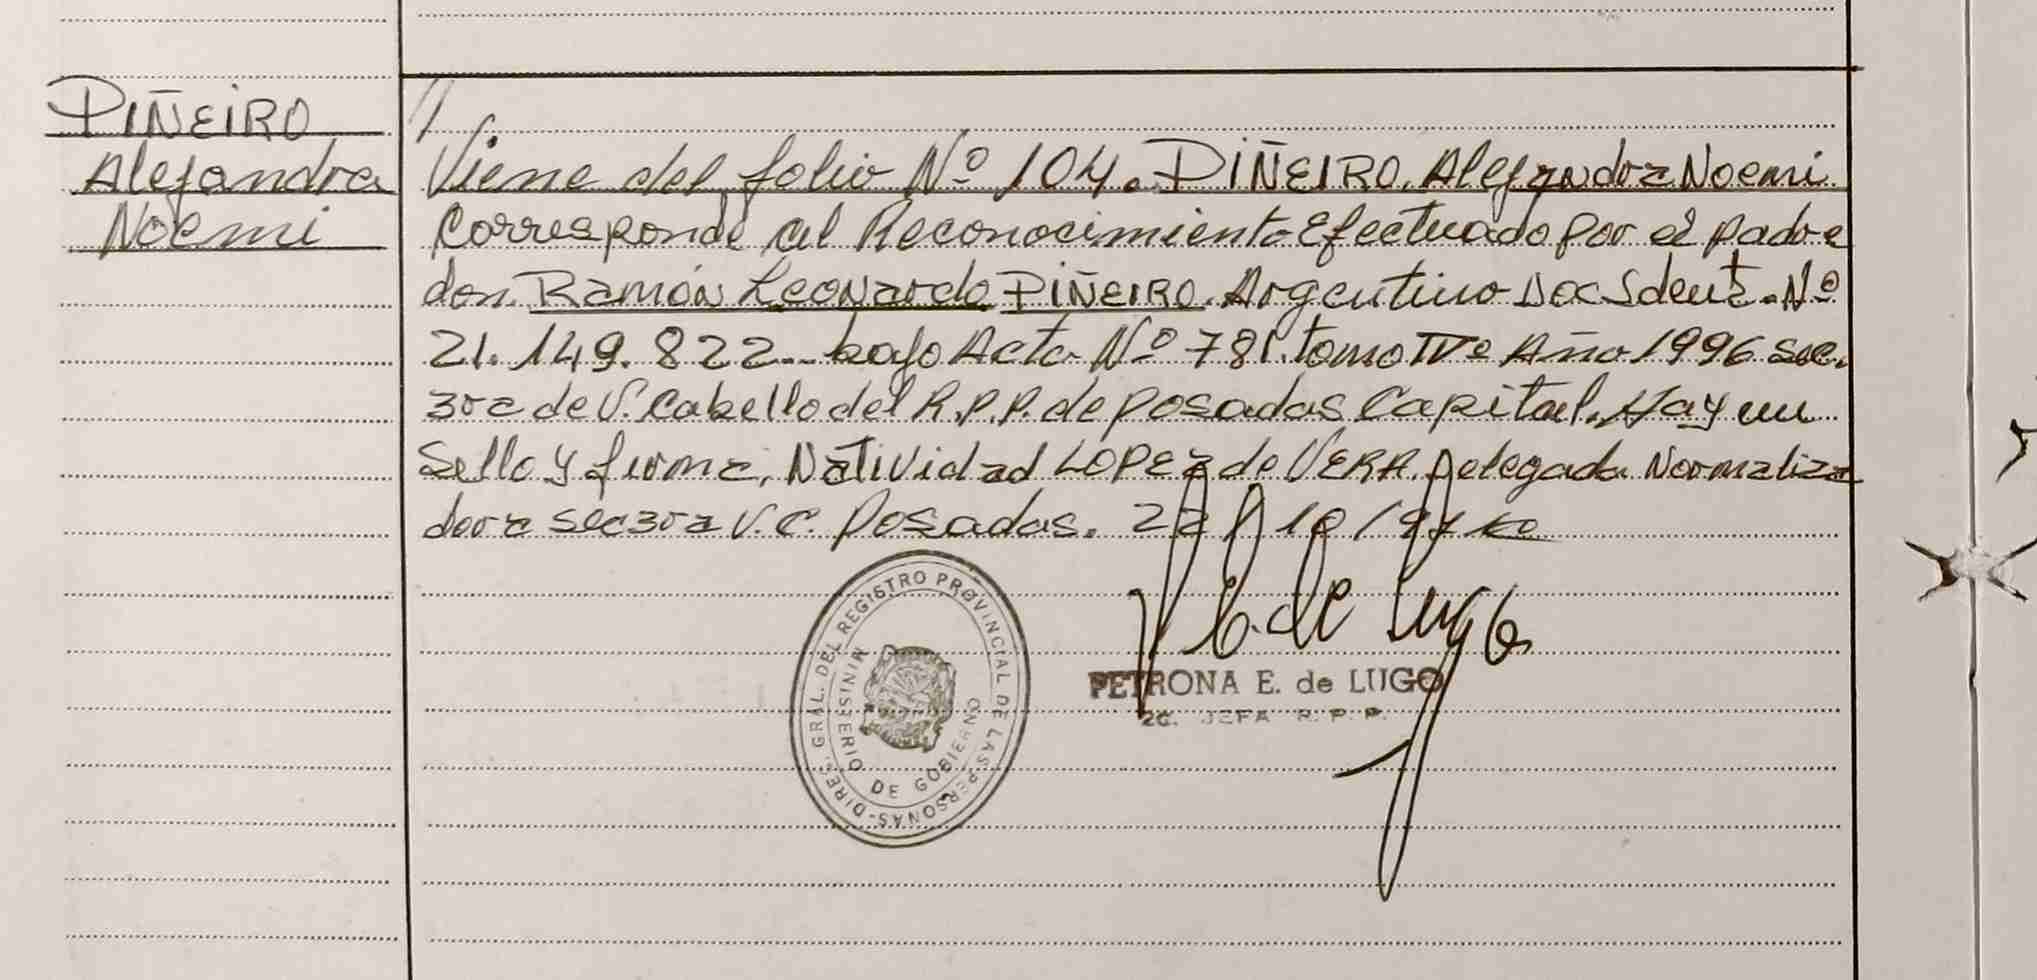 PIÑEIRO
Alejandra
Noemi
//
Viene del folio Nº 104. PIÑEIRO, Alejandra Noemi
Corresponde al Reconocimiento Efectuado por el padre
don. Ramón Leonardo PIÑEIRO. Argentino Doc Ident. Nº
21.149.822 bajo Acta Nº 781. tomo IVº Año 1996 sec.
3ra de V. Cabello del R.P.P. de Posadas Capital. Hay un
Sello y firma, Natividad LOPEZ de VERA. Delegada Normaliza
dora sec 3ra V.C. Posadas. 22/10/97
P E. de Lugo
PETRONA E. de LUGO
2a. JEFA R. P. P.
DIREC. GRAL. DEL REGISTRO PROVINCIAL DE LAS PERSONAS-
MINISTERIO DE GOBIERNO